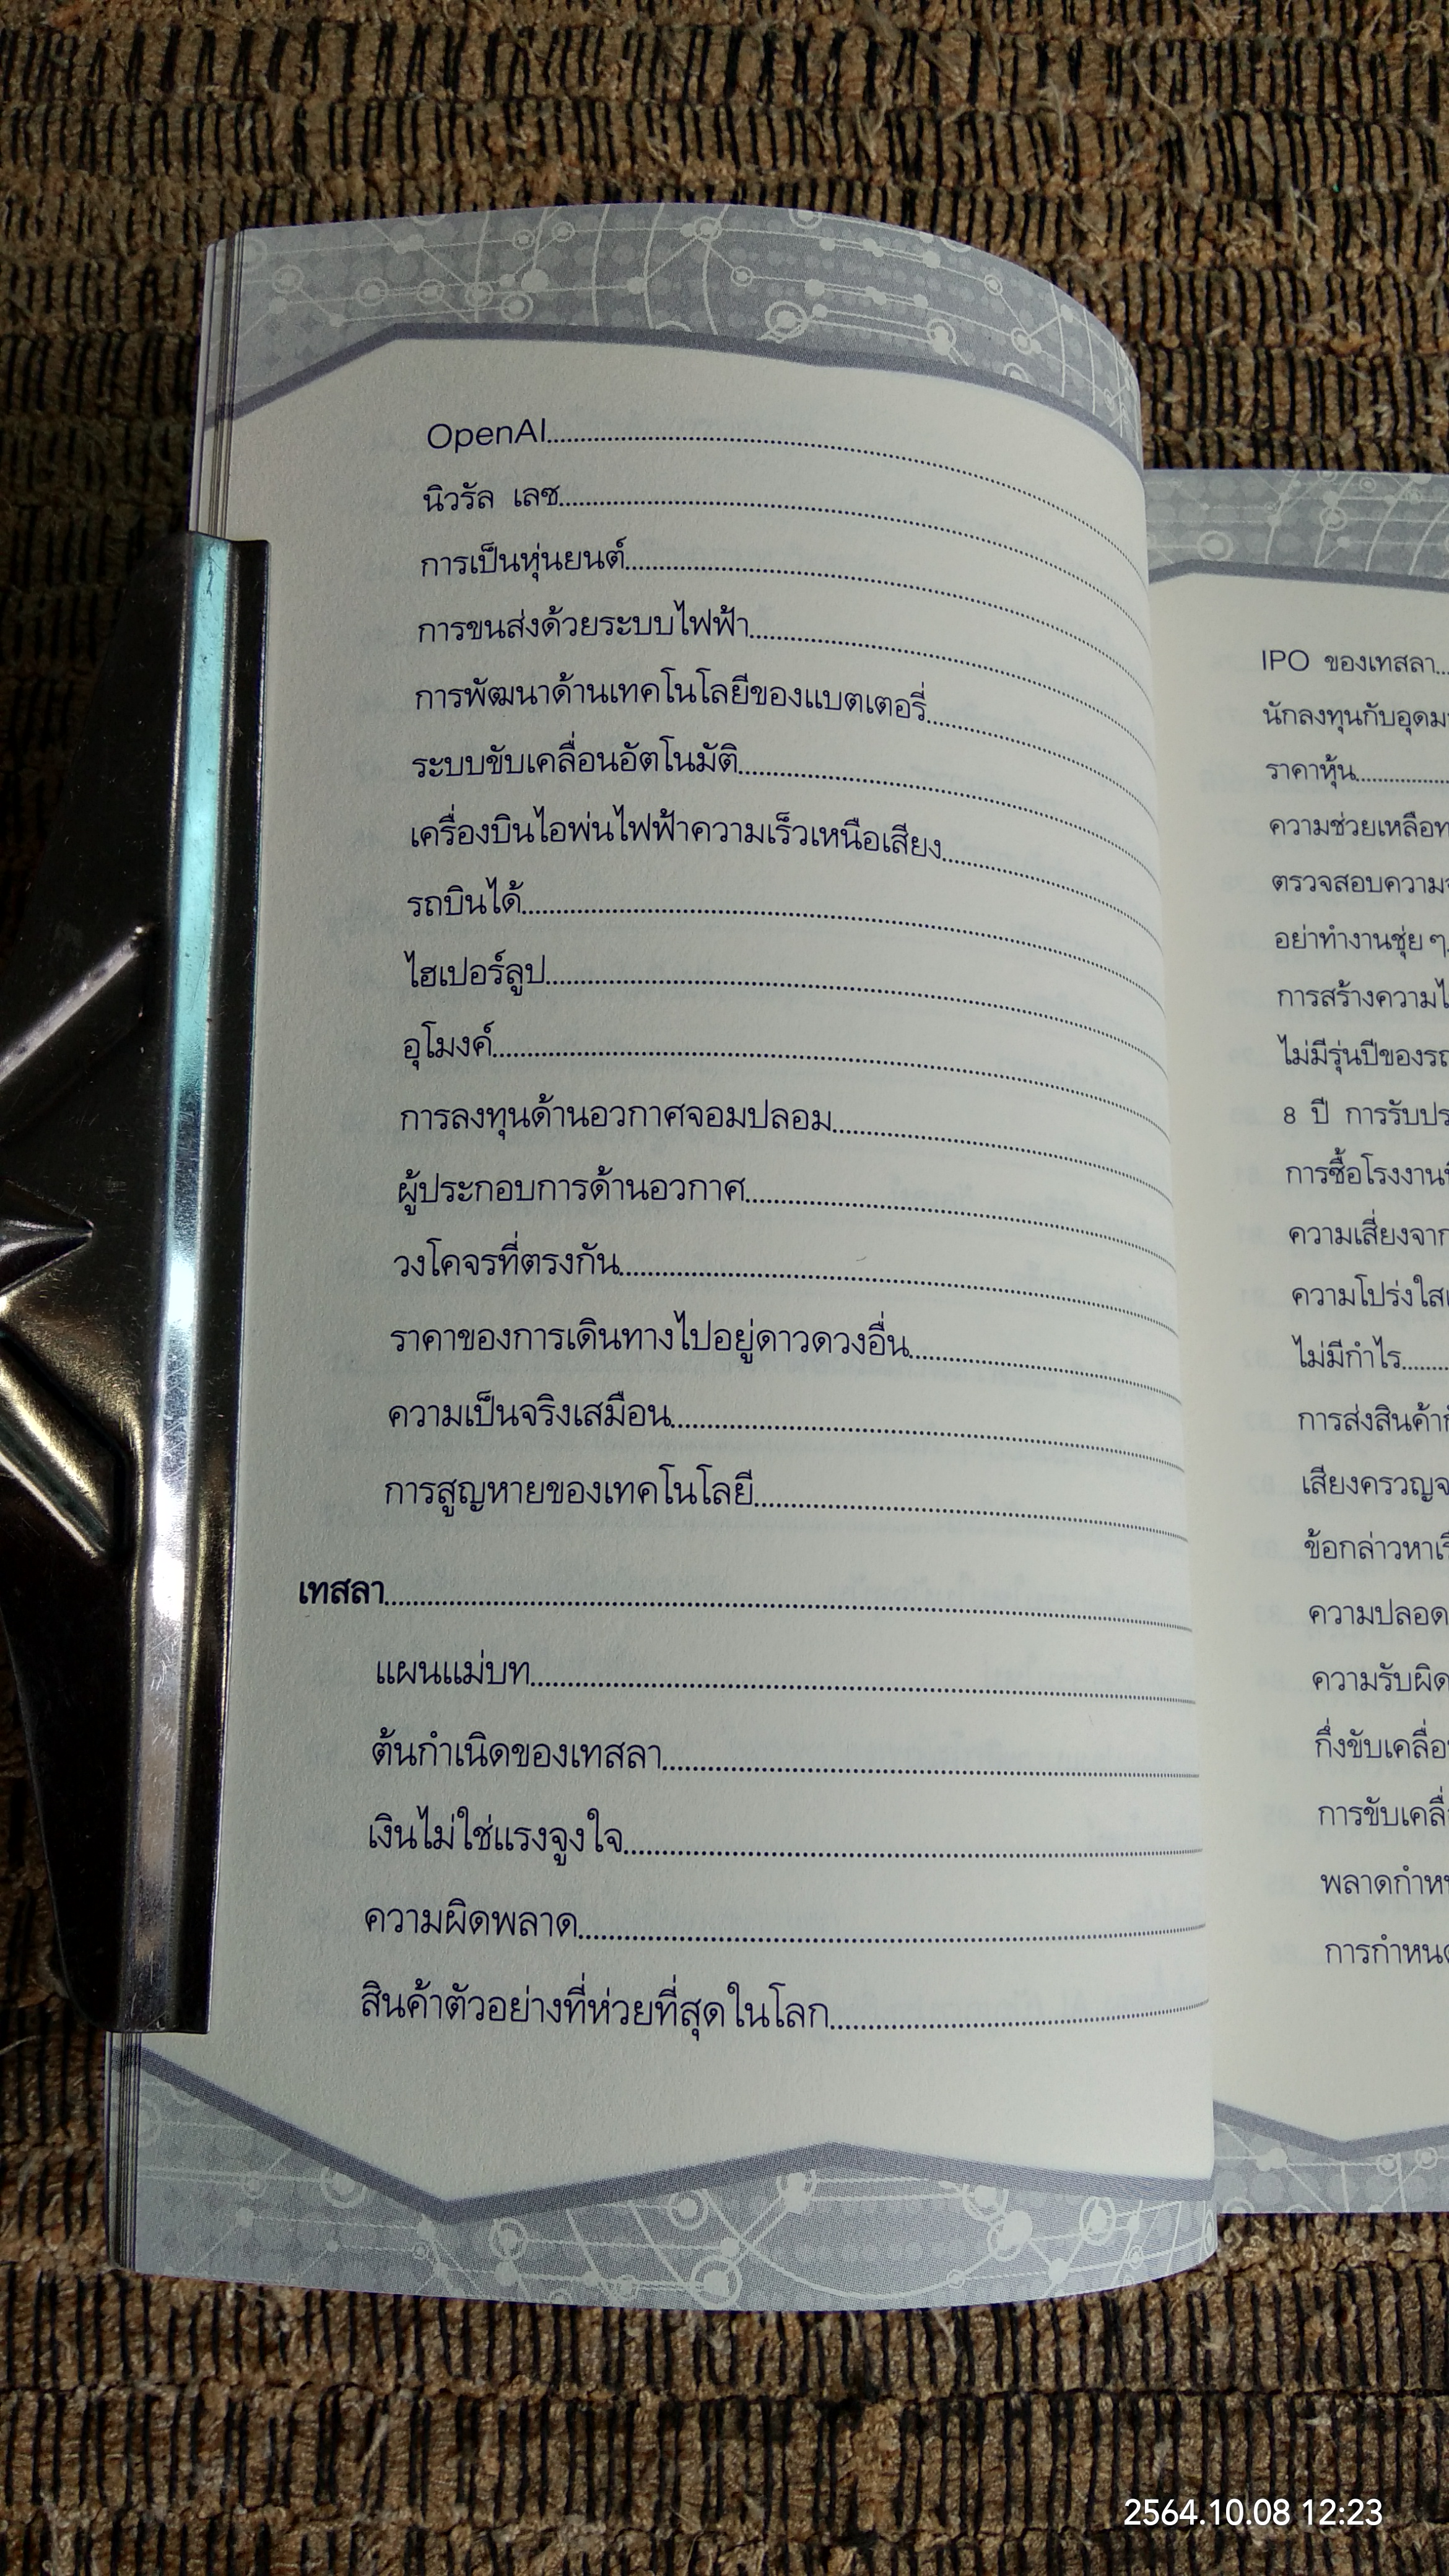 OpenAI
นิวรัล เลซ
การเป็นหุ่นยนต์
การขนส่งด้วยระบบไฟฟ้า
การพัฒนาด้านเทคโนโลยีของแบตเตอรี่
ระบบขับเคลื่อนอัตโนมัติ
เครื่องบินไอพ่นไฟฟ้าความเร็วเหนือเสียง
รถบินได้
ไฮเปอร์ลูป
อุโมงค์
การลงทุนด้านอวกาศจอมปลอม
ผู้ประกอบการด้านอวกาศ
วงโคจรที่ตรงกัน
ราคาของการเดินทางไปอยู่ดาวดวงอื่น
ความเป็นจริงเสมือน
การสูญหายของเทคโนโลยี
เทสลา
แผนแม่บท
ต้นกำเนิดของเทสลา
เงินไม่ใช่แรงจูงใจ
ความผิดพลาด
สินค้าตัวอย่างที่ห่วยที่สุดในโลก
IPO ของเทสลา
นักลงทุนกับอุดม
ราคาหุ้น
ความช่วยเหลือ
ตรวจสอบความ
อย่าทำงานชุ่ย ๆ
การสร้างความ
ไม่มีรุ่นปีของรถ
8 ปี การรับประ
การซื้อโรงงาน
ความเสี่ยงจาก
ความโปร่งใส
ไม่มีกำไร
การส่งสินค้า
เสียงครวญ
ข้อกล่าวหา
ความปลอด
ความรับผิด
กึ่งขับเคลื่อ
การขับเคลื่
พลาดกำห
การกำหน
2564.10.08 12:23